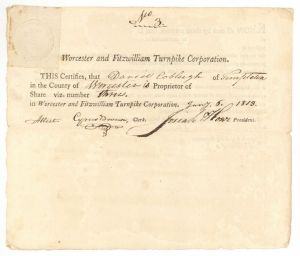 No.
3.
Worcester and Fitzwilliam Turnpike Corporation.
THIS Certifies, that Daniel Cobleigh of Templeton
in the County of Worcester is Proprietor of
Share viz. number three
in Worcester and Fitzwilliam Turnpike Corporation. Jany. 6. 1813.
Attest. Cyrus Clerk. Josiah Howe President.